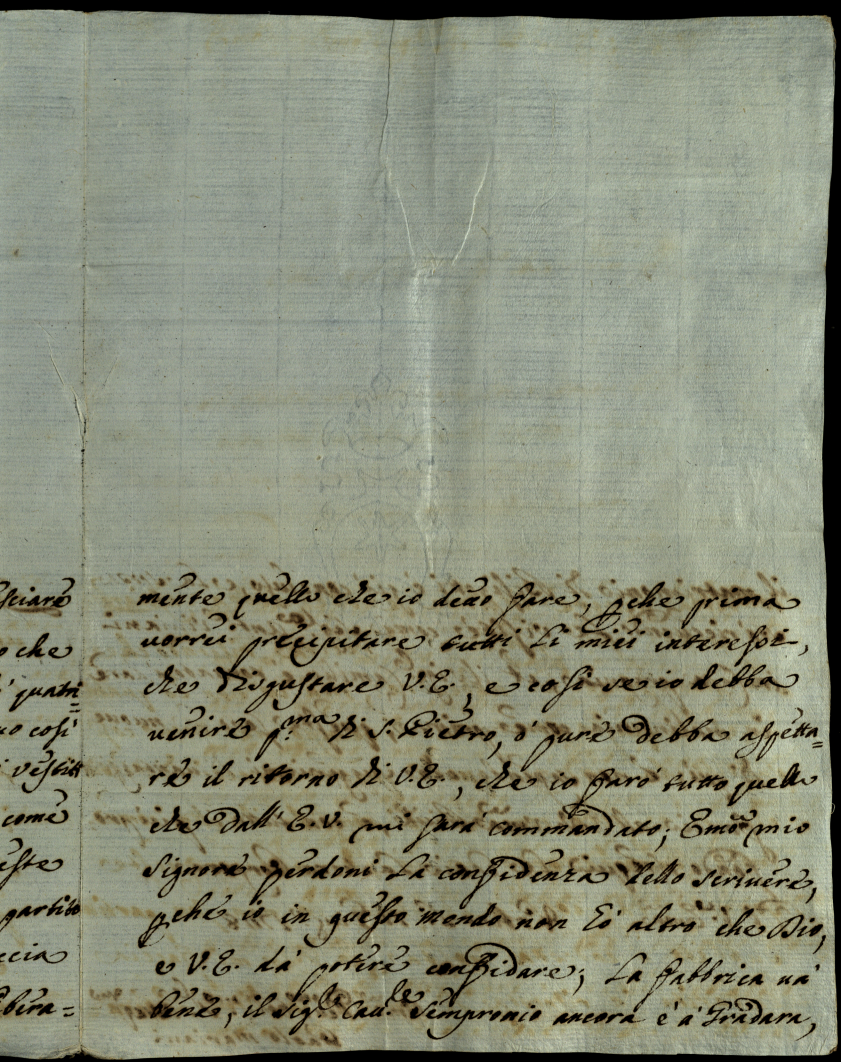 sciare
o che
i' quatri=
no così
i vestiti
come
este
partito
ccia
bera=
mente quello che io deuo fare, pche prima
uorrei precipitare tutti li miei interessi,
che disgustare V.E., e così se io debba
uenire p.ma di S. Pietro, ò pure debba aspetta=
re il ritorno di V.E., che io farò tutto quello
che dall' E.V. mi sarà commandato; Emō mio
Signore perdoni la confidenza dello scriuere,
pche io in questo mondo non hò altro che Dio,
e V.E. da potere confidare; La fabbrica uà
bene, il Sig.re Cau.re Sempronio ancora è à Gradara,